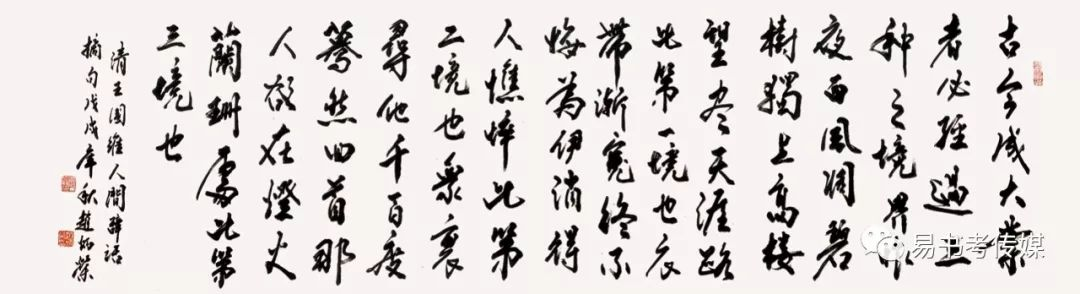 古今成大業
者必經過三
种之境界昨
夜西風凋碧
樹獨上高楼
望尽天涯路
此第一境也衣
帶漸寬終不
悔為伊消得
人憔悴此第
二境也衆裏
尋他千百度
驀然回首那
人却在燈火
蘭珊處此第
三境也
清王國維人間辞話
摘句戊戌年秋趙炳榮
易书考传媒